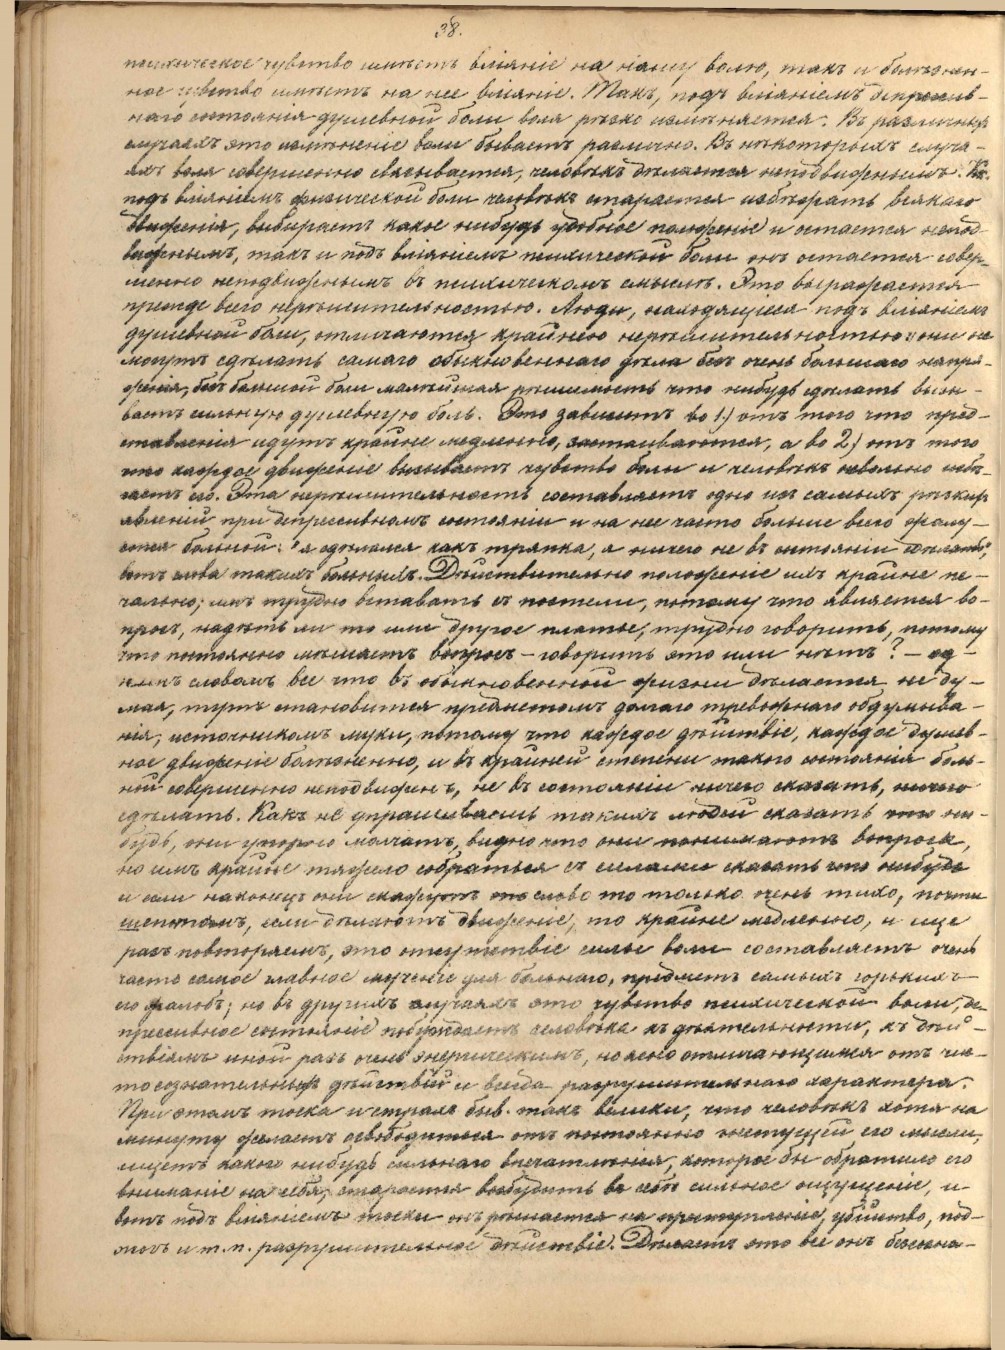 38.
психическое чувство имѣетъ вліяніе на нашу волю, такъ и болѣзнен-
ное чувство имѣетъ на нее вліяніе. Такъ, подъ вліяніемъ депрессив-
наго состоянія душевной боли воля рѣзко измѣняется. Въ различныхъ
случаяхъ это измѣненіе воли бываетъ различно. Въ нѣкоторыхъ случа-
яхъ воля совершенно связывается, человѣкъ дѣлается неподвижнымъ. Какъ
подъ вліяніемъ физической боли человѣкъ старается избѣгать всякаго
движенія, выбираетъ какое нибудь удобное положеніе и остается непод-
вижнымъ, такъ и подъ вліяніемъ психической боли онъ остается совер-
шенно неподвижнымъ въ психическомъ смыслѣ. Это выражается
прежде всего нерѣшительностью. Люди, находящіеся подъ вліяніемъ
душевной боли, отличаются крайнею нерѣшительностью: они не
могутъ сдѣлать самаго обыкновеннаго дѣла безъ очень большаго напря-
женія, безъ большой боли малѣйшая рѣшимость что нибудь сдѣлать вызы-
ваетъ сильную душевную боль. Это зависитъ во 1) отъ того что пред-
ставленія идутъ крайне медленно, застаиваются, а во 2) отъ того
что каждое движеніе вызываетъ чувство боли и человѣкъ невольно избѣ-
гаетъ его. Эта нерѣшительность составляетъ одно изъ самыхъ рѣзкихъ
явленій при депрессивномъ состояніи и на нее часто больше всего жалу-
ются больной: "я сдѣлался какъ тряпка, я ничего не въ состояніи сдѣлать",
вотъ слова такихъ больныхъ. Дѣйствительно положеніе ихъ крайне пе-
чально; имъ трудно вставать съ постели, потому что является во-
просъ, надѣть ли то или другое платье, трудно говорить, потому
что постоянно мѣшаетъ вопросъ – говорить это или нѣтъ? – од-
нимъ словомъ все что въ обыкновенной жизни дѣлается не ду-
мая, тутъ становится предметомъ долгаго тревожнаго обдумыва-
нія, источникомъ муки, потому что каждое дѣйствіе, каждое душев-
ное движеніе болѣзненно, и въ крайней степени такого состоянія боль-
ной совершенно неподвиженъ, не въ состояніи ничего сказать, ничего
сдѣлать. Какъ не упрашиваешь такихъ людей сказать что ни-
будь, они упорно молчатъ, видно что они понимаютъ вопросъ,
но имъ крайне тяжело собраться съ силами сказать что нибудь
и если наконецъ они скажутъ то слово то только очень тихо, почти
шепотомъ, если дѣлаютъ движеніе, то крайне медленно, и еще
разъ повторяемъ, это отсутствіе силы воли составляетъ очень
часто самое главное мученіе для больнаго, предметъ самыхъ горькихъ
его жалобъ; но въ другихъ случаяхъ это чувство психической боли, де-
прессивное состояніе побуждаетъ человѣка къ дѣятельности, къ дѣй-
ствіямъ иной разъ очень энергическимъ, но ясно отличающимся отъ чис-
то сознательныхъ дѣйствій и всегда разрушительнаго характера.
При этомъ тоска и страхъ быв. такъ велики, что человѣкъ хотя на
минуту желаетъ освободиться отъ постоянно гнетущей его мысли,
ищетъ какого нибудь сильнаго впечатлѣнія, которое бы обратило его
вниманіе на себя, старается возбудить въ себѣ сильное ощущеніе, и
вотъ подъ вліяніемъ тоски онъ рѣшается на преступленіе, убійство, под-
жогъ и т.п. разрушительное дѣйствіе. Дѣлаетъ это все онъ безсозна-